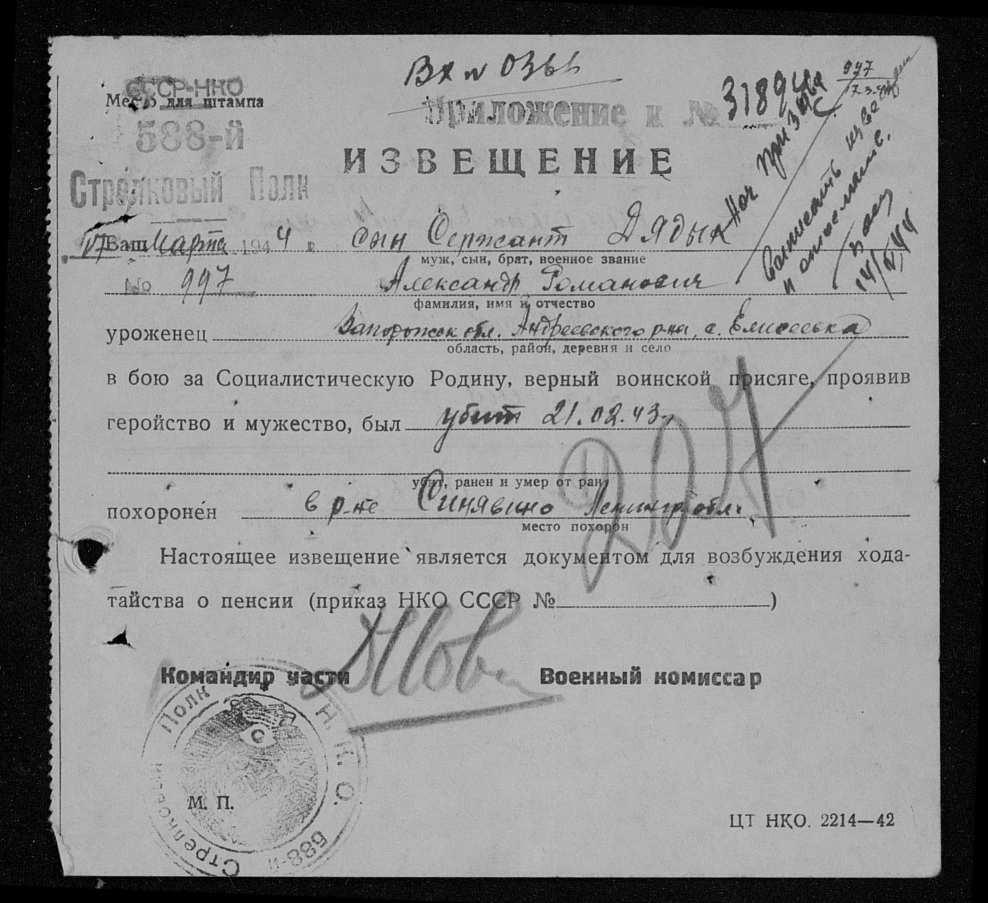 Вх № 0366
СССР-НКО
Место для штампа
Приложение к № 3189
997
588-й
ИЗВЕЩЕНИЕ
Стрелковый Полк
Ваш сын Сержант Дядык
муж, сын, брат, военное звание
07 Марта 1944 г.
№ 997
Александр Романович
фамилия, имя и отчество
уроженец Запорожск обл. Андреевского р-на, с.
область, район, деревня и село
в бою за Социалистическую Родину, верный воинской присяге, проявив
геройство и мужество, был убит 21.02.43
убит, ранен и умер от ран
похоронен в р-не Синявино Ленингр. обл.
место похорон
Настоящее извещение является документом для возбуждения хода-
тайства о пенсии (приказ НКО СССР № )
Командир части Военный комиссар
Н.К.О. 588-й Стрелковый Полк
М. П.
ЦТ НКО. 2214—42
Нач
Выписать извещение
и
207